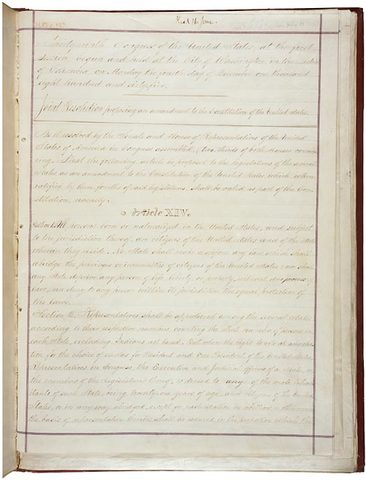 Thirty-ninth Congress of the United States, at the first
session, begun and held at the City of Washington, in the
of December, on Monday the fourth day of December one thousand
eight hundred and sixty-five.
Joint Resolution proposing an amendment to the Constitution of the United States.
Be it resolved by the Senate and House of Representatives of the United
States of America in Congress assembled, two thirds of both Houses concur-
ring, That the following article be proposed to the legislatures of the several
States as an amendment to the Constitution of the United States, which, when
ratified by three fourths of said legislatures, shall be valid as part of the Con-
stitution, namely:
Article XIV.
Section 1. All persons born or naturalized in the United States, and subject
to the jurisdiction thereof, are citizens of the United States and of the State
wherein they reside. No State shall make or enforce any law which shall
abridge the privileges or immunities of citizens of the United States; nor shall
any State deprive any person of life, liberty, or property, without due process of
law, nor deny to any person within its jurisdiction the equal protection of
the laws.
Section 2. Representatives shall be apportioned among the several States
according to their respective numbers, counting the whole number of persons in
each State, excluding Indians not taxed. But when the right to vote at any elec-
tion for the choice of electors for President and Vice President of the United States,
Representatives in Congress, the Executive and Judicial officers of a State, or
the members of the Legislature thereof, is denied to any of the male inhab-
itants of such State, being twenty-one years of age, and citizens of the United
States, or in any way abridged, except for participation in rebellion, or other crime,
the basis of representation therein shall be reduced in the proportion which the